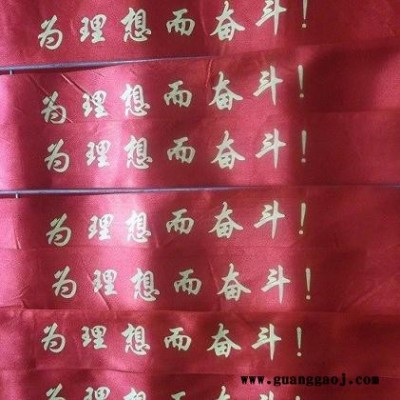 为理想而奋斗!
为理想而奋斗!
为理想而奋斗!
为理想而奋斗!
为理想而奋斗!
为理想而奋斗!
为理想而奋斗!
www.guanggaoj.com